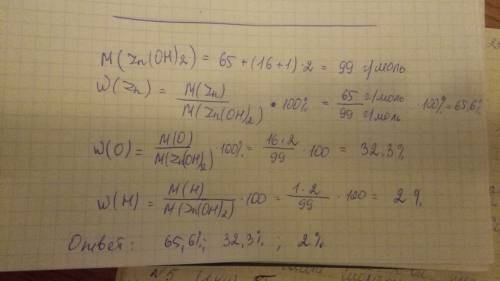 M(Zn(OH)2) = 65 + (16+1)·2 = 99 г/моль
W(Zn) = M(Zn) / M(Zn(OH)2) · 100% = 65 г/моль / 99 г/моль · 100% = 65,6%
W(O) = M(O) / M(Zn(OH)2) · 100% = 16·2 / 99 · 100 = 32,3%
W(H) = M(H) / M(Zn(OH)2) · 100 = 1·2 / 99 · 100 = 2%
Ответ: 65,6%; 32,3%; 2%
N 5